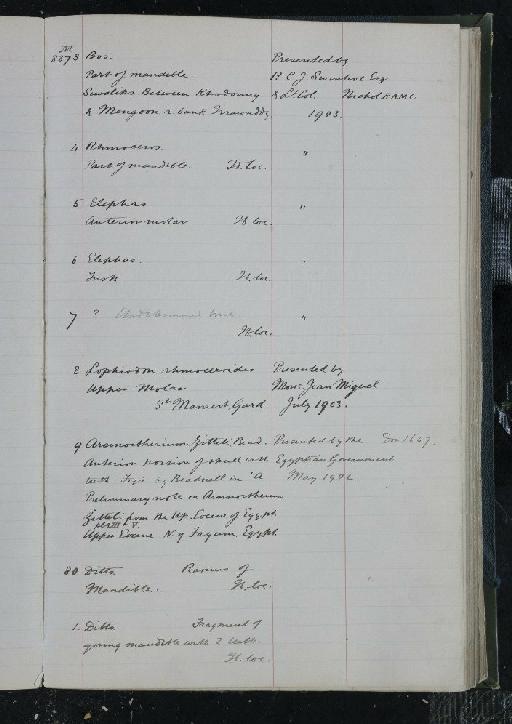 M
8873 Bos. Presented by
Part of mandible
Siwaliks Between
& Mengoon r. bank Irrawaddy 1903.
4 Rhinoceros. "
Part of mandible. H. loc.
5 Elephas "
Anterior molar H. loc.
6 Elephas. "
Tusk H. loc.
7 ? "
H. loc.
8 Lophiodon rhinocerodes Presented by
Upper Molar Mons. Jean Miquel
St Mamert, Gard July 1903.
9 Arsinoitherium Zitteli, Bead. Presented by the Don 1667.
Anterior portion of skull with Egyptian Government
teeth Fig'd by Beadnell in 'A May 1902
Preliminary note on Arsinoitherium
Zitteli from the Up. Eocene of Egypt
pls III V.
Upper Eocene N of Fayum, Egypt.
80 Ditto Ramus of
Mandible. H. loc.
1. Ditto Fragment of
young mandible with 2 teeth.
H. loc.